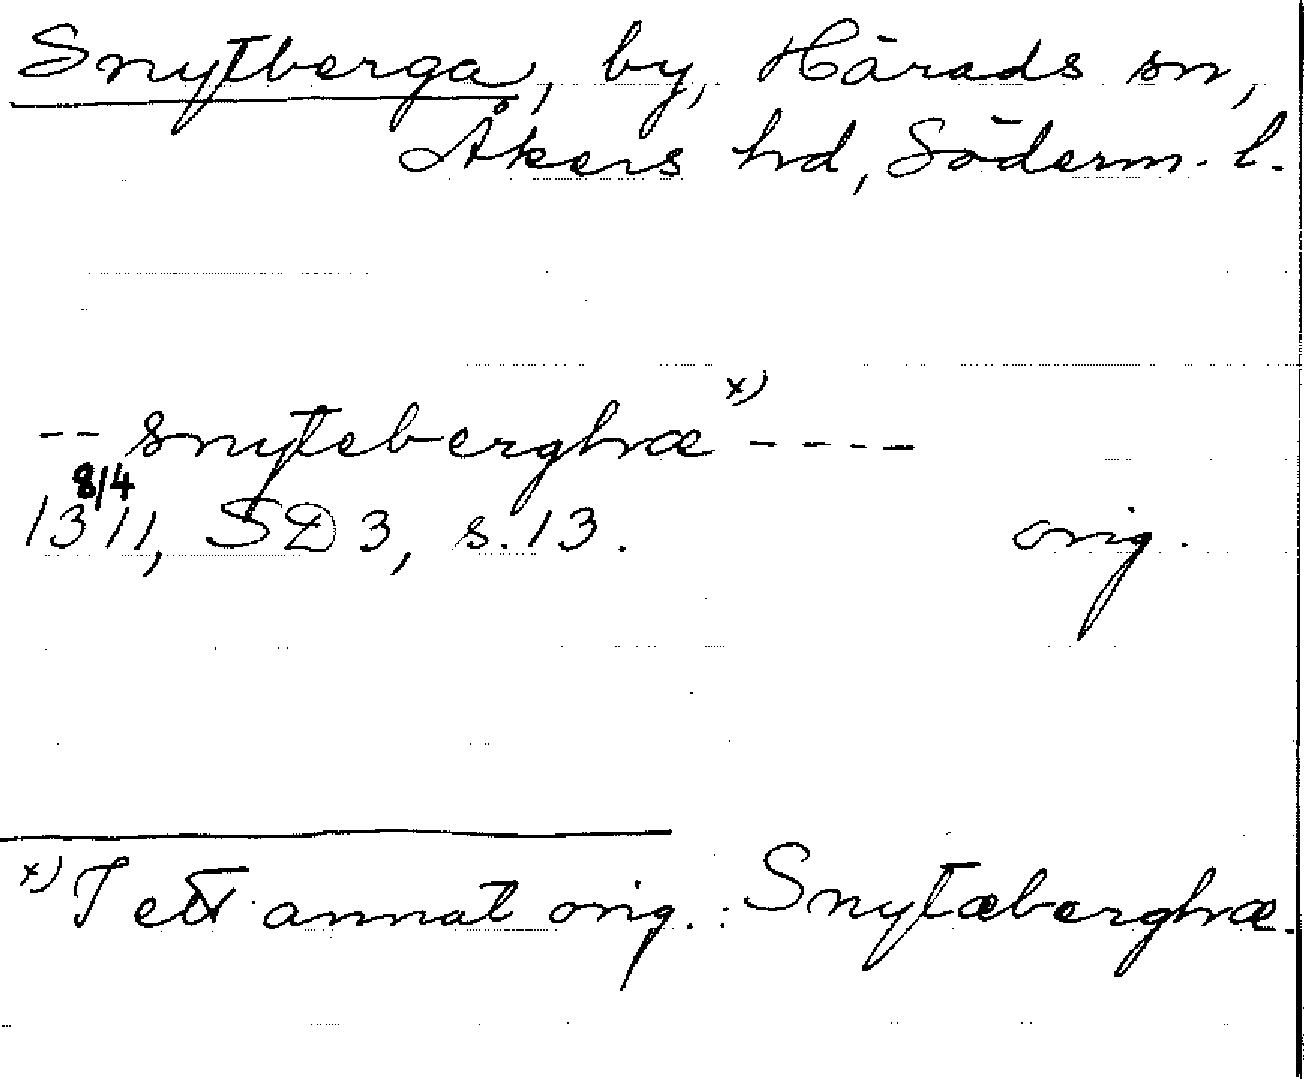 Snytberga, by, Härads sn,
Åkers hd, Söderm. l.
-- snyteberghæ x) ----
8/4
1311, SD 3, s. 13. orig.
x) I ett annat orig.: Snytæberghæ.